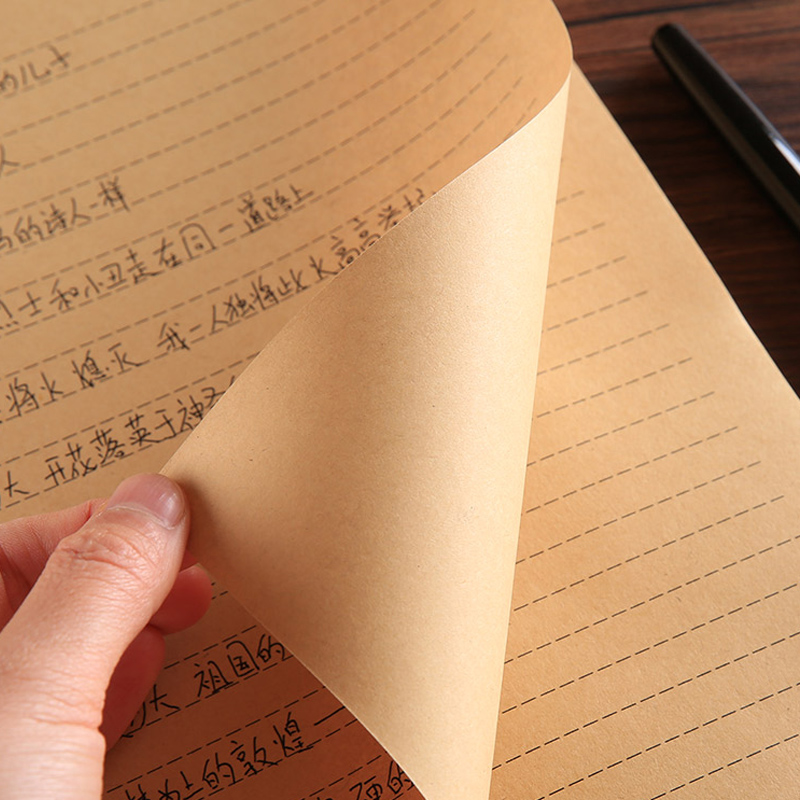 的儿子
人
的诗人一样
烈士和小丑走在同一道路上
将火熄灭 我一人独将此火高高举起
大 开花落英于神圣
大 祖国的
的敦煌一